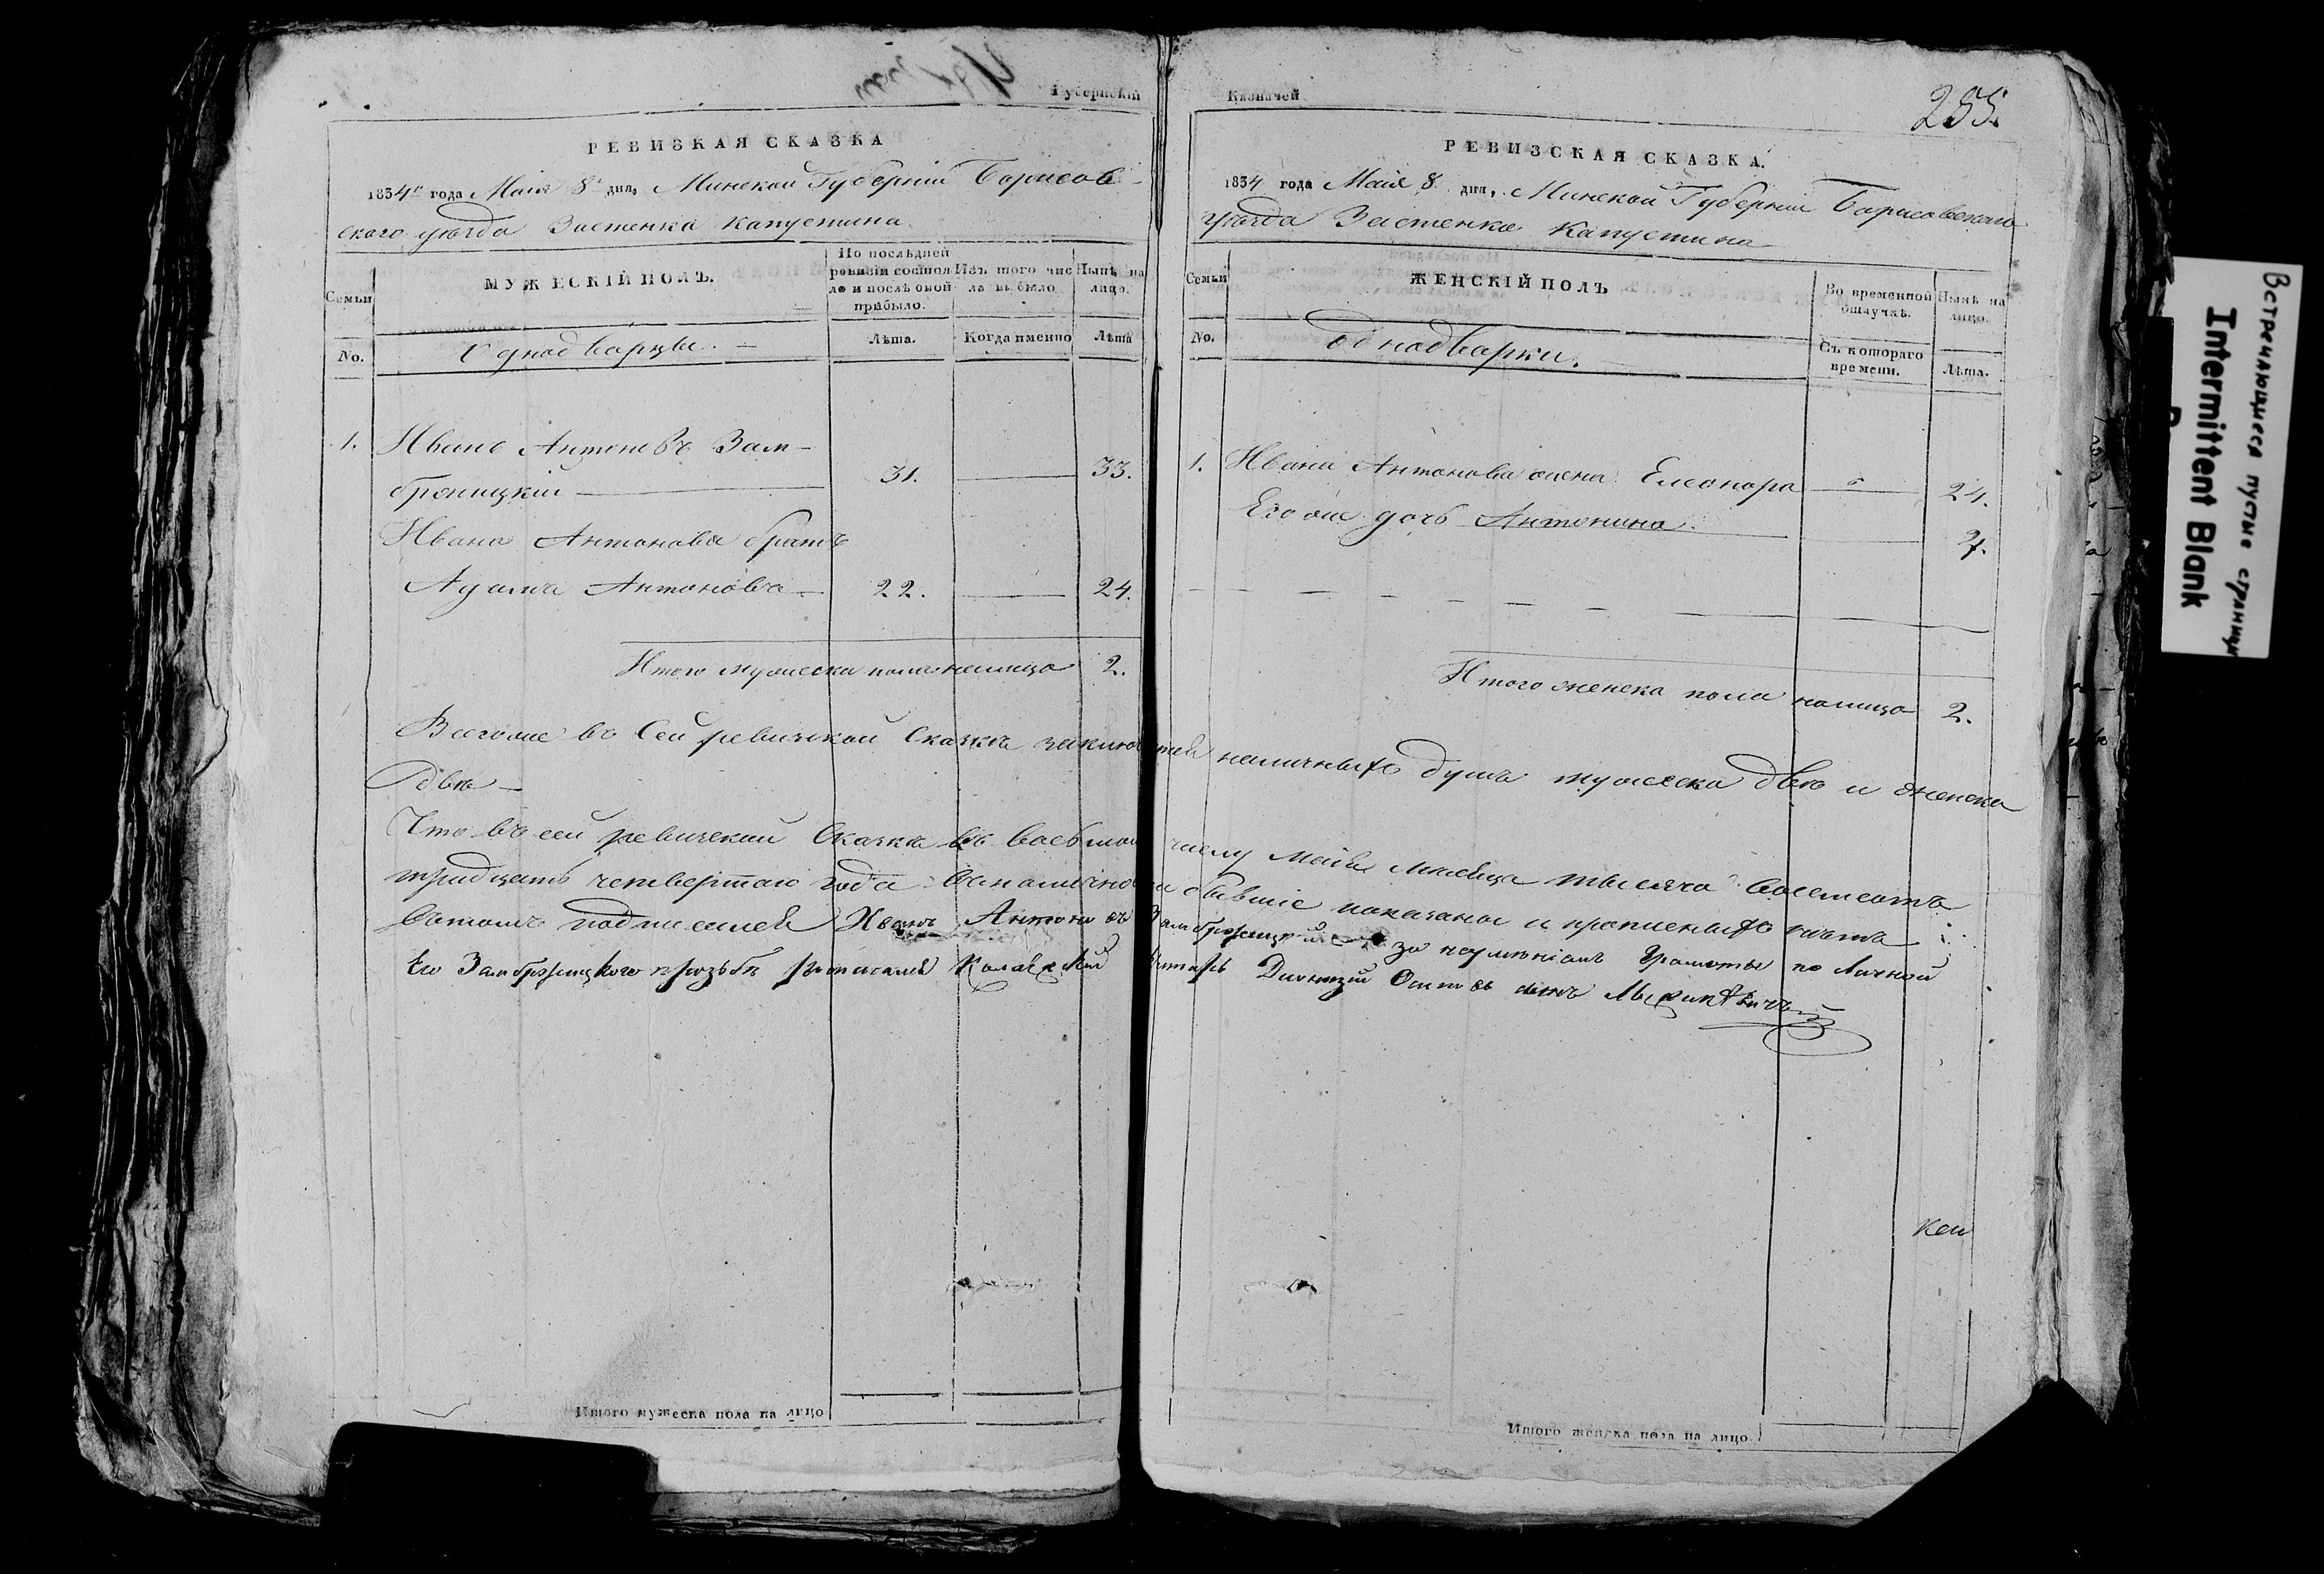 Губернскій
РЕВИЗКАЯ СКАЗКА
1834го года Маія 8 дня, Минской Губерніи Борисов-
ского уѣзда Застенка Капустина
Семьи
МУЖЕСКІЙ ПОЛЪ.
По послѣдней
ревизіи состоя-
ло и послѣ оной
прибыло.
Изъ того чис
ла выбыло
Нынѣ на
лицо.
No.
Однодворцы.
Лѣта.
Когда именно
Лѣта
1.
Иванъ Антоновъ Зам-
бржицкій
31.
33.
Ивана Антонова братъ
Адамъ Антоновъ
22.
24.
Итого мужеска пола налицо 2.
Казначей
255.
РЕВИЗСКАЯ СКАЗКА.
1834 года Маія 8 дня, Минской Губерніи Борисовского
уѣзда Застенка Капустина
Семьи
ЖЕНСКІЙ ПОЛЪ
Во временной
отлучкѣ.
Нынѣ на
лицо.
No.
Однодворки.
Съ котораго
времени.
Лѣта.
1.
Ивана Антонова жена Елеонора
24.
Его же дочь Антонина
Итого женска пола налицо 2.
Всего же въ сей ревизкой сказкѣ наличныхъ душъ мужеска двѣ и женска
двѣ
Что въ сей ревизкой сказкѣ къ восьмому числу Маія мѣсяца тысяча восемсотъ
тридцать четвертаго года бывшіе показаны и прописныхъ нѣтъ
Въ томъ подписался Иванъ Антоновъ Замбржицкій за неумѣніемъ грамоты по личной
его Замбржицкого прозьбѣ росписался Дионизій Осиповъ сынъ
кои
Итого мужеска пола на лицо
Итого женска пола на лицо
Встречающиеся пустые страницы
Intermittent Blank